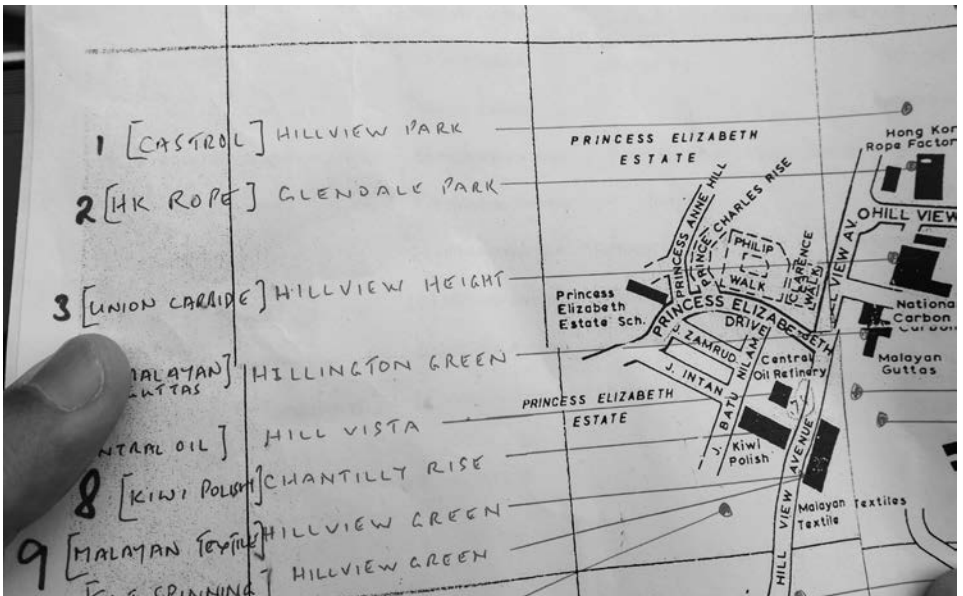 1 [CASTROL] HILLVIEW PARK
2 [HK ROPE] GLENDALE PARK
3 [UNION CARBIDE] HILLVIEW HEIGHT
MALAYAN] HILLINGTON GREEN
GUTTAS
NTRAL OIL] HILL VISTA
8 [KIWI POLISH] CHANTILLY RISE
9 [MALAYAN TEXTILE] HILLVIEW GREEN
SPINNING] HILLVIEW GREEN
PRINCESS ELIZABETH
ESTATE
Hong Kon
Rope Factor
PRINCESS ANNE HILL
PRINCE CHARLES RISE
PHILIP
WALK
CLARENCE
WALK
HILL VIEW AV.
OHILL VIEW
Princess
Elizabeth
Estate Sch.
PRINCESS ELIZABETH
DRIVE
National
Carbon
Carbon
Malayan
Guttas
J. ZAMRUD
J. INTAN
J. BATU NILAM
Central
Oil Refinery
PRINCESS ELIZABETH
ESTATE
Kiwi
Polish
HILL VIEW AVENUE
Malayan Textiles
Textile